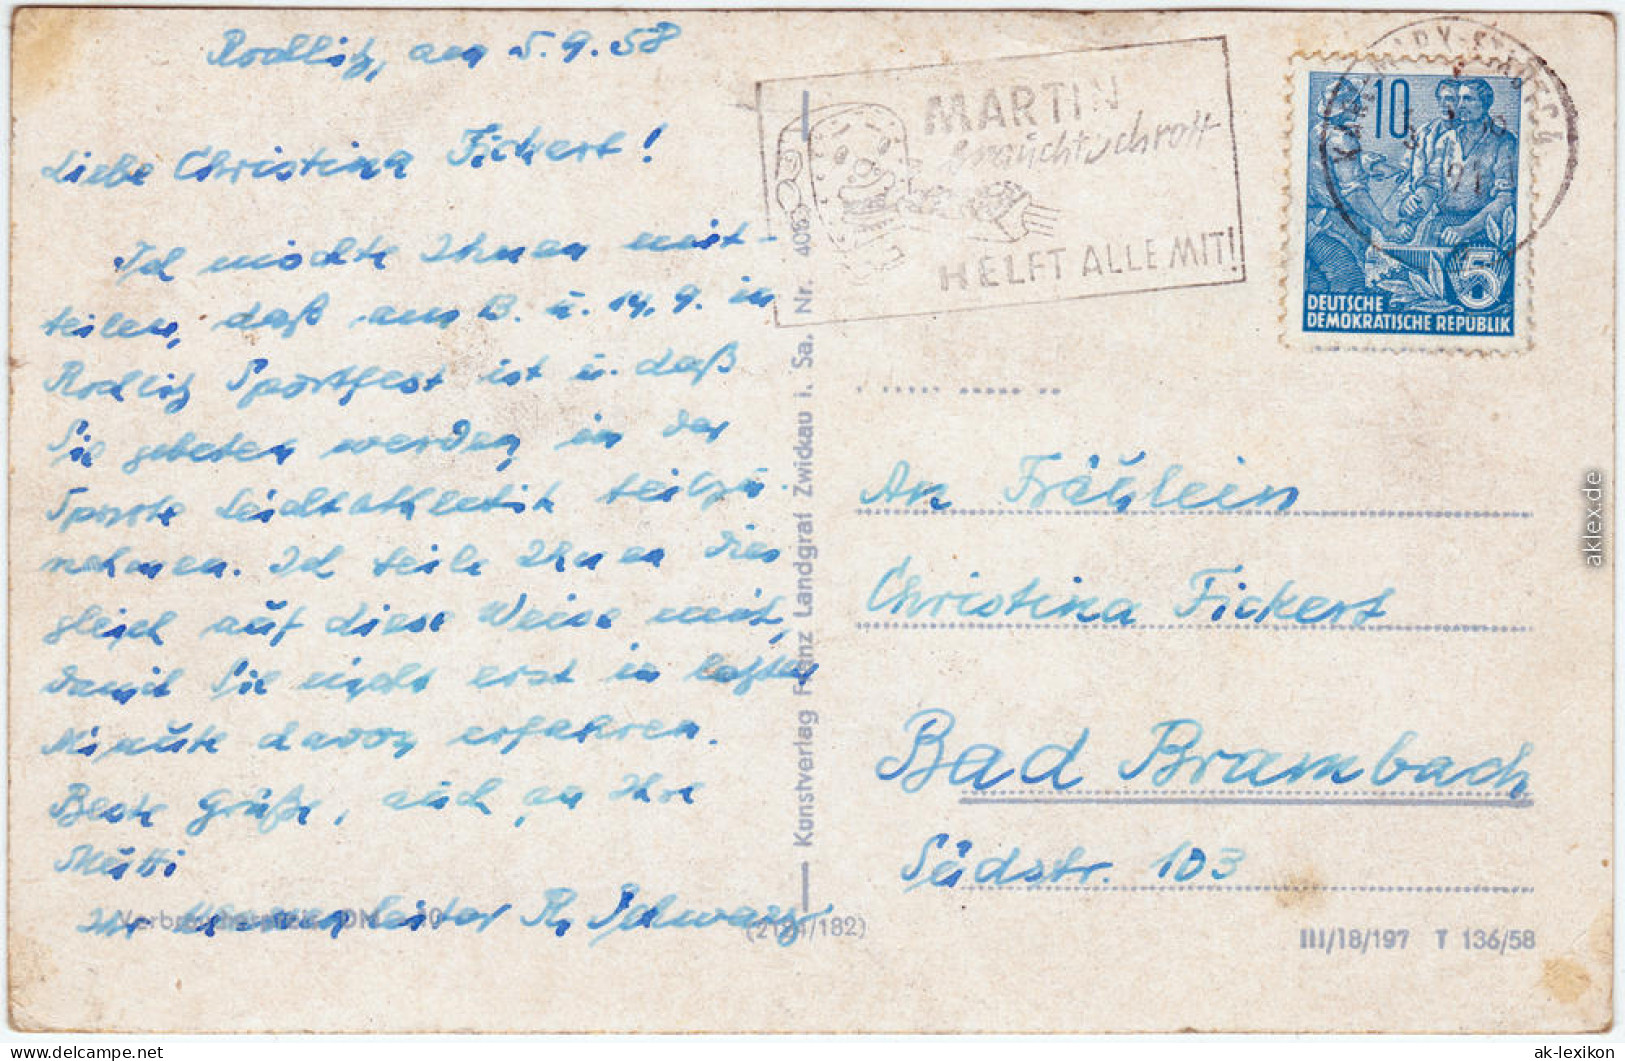 Rodlitz, am 5.9.58
Liebe Christina Fickert!
Ich möchte Ihnen mit-
teilen, daß am 13. u. 14.9. in
Rodlitz Sportfest ist u. daß
Sie gebeten werden, in der
Sparte Leichtathletik teilzu-
nehmen. Ich teile Ihnen dies
gleich auf diese Weise mit,
damit Sie nicht erst in letzter
Minute davon erfahren.
Beste Grüße, auch an Ihre
Mutti
Ihr R. Schwarz
(2124/182)
Kunstverlag Franz Landgraf Zwickau i. Sa. Nr. 4015
MARTIN
braucht Schrott
HELFT ALLE MIT!
10
5
DEUTSCHE
DEMOKRATISCHE REPUBLIK
An Fräulein
Christina Fickert
Bad Brambach
Südstr. 103
III/18/197 T 136/58
aklex.de
www.delcampe.net
ak-lexikon